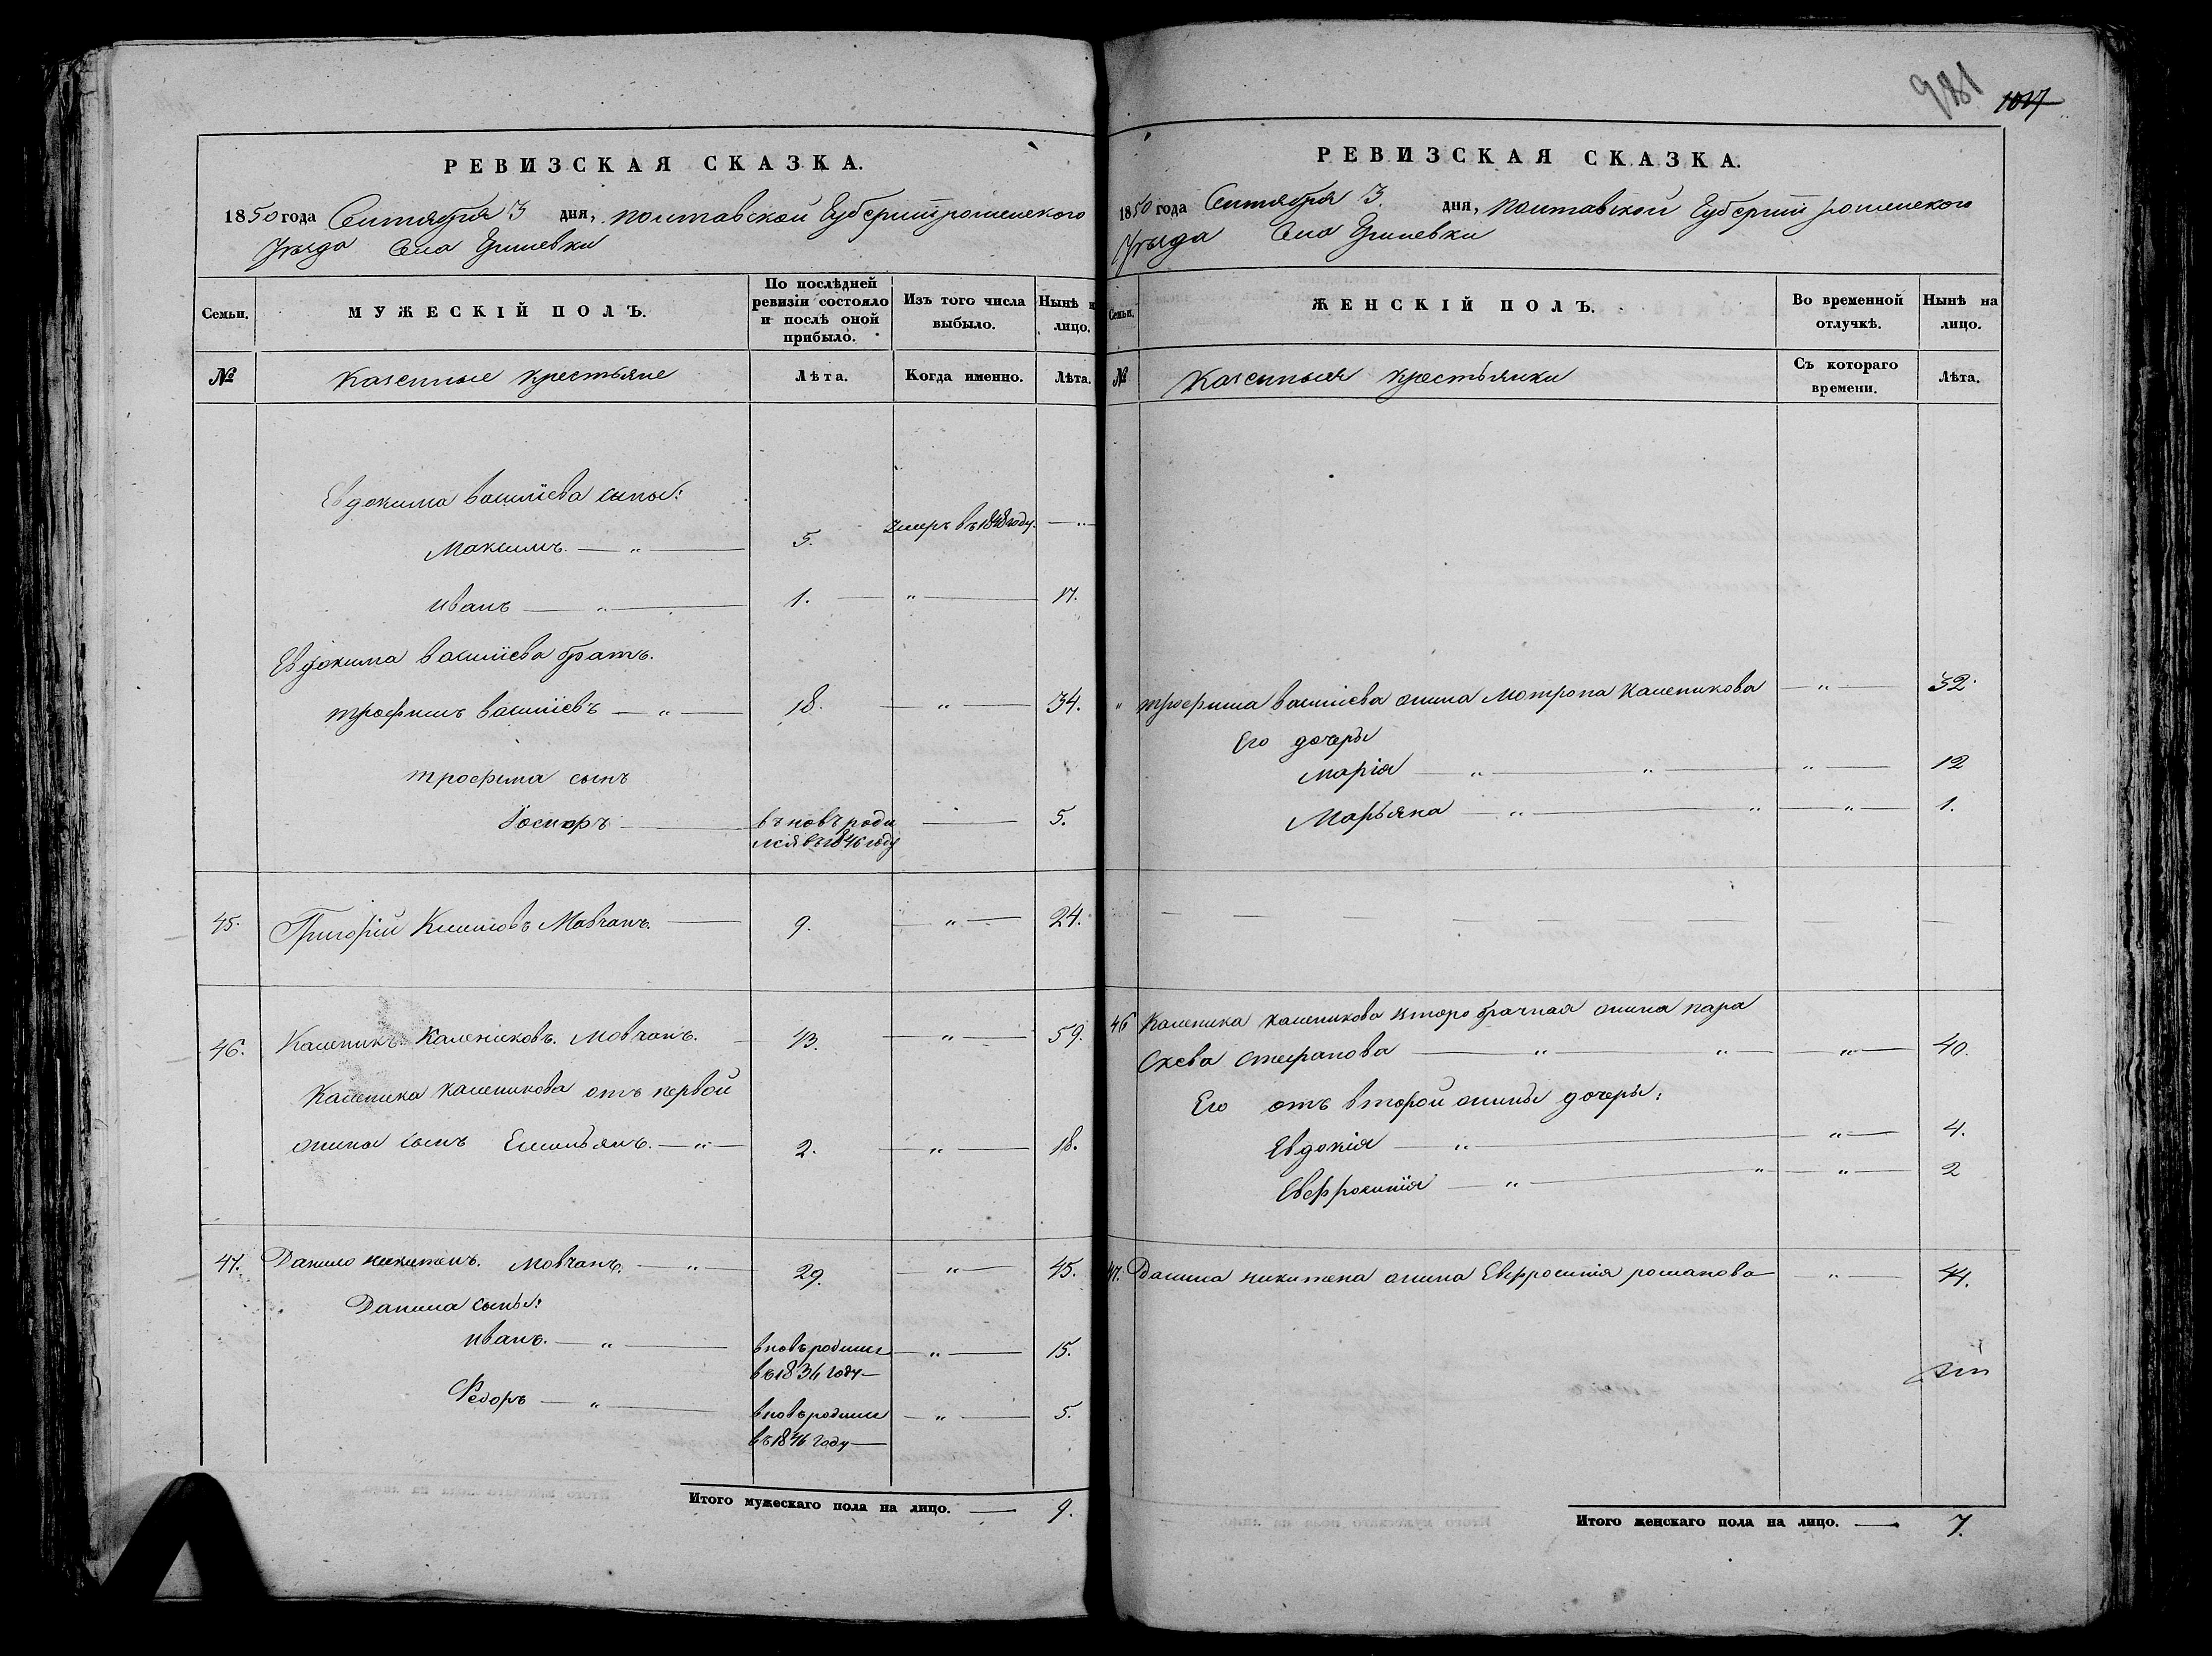 981 1017
РЕВИЗСКАЯ СКАЗКА.
1850 года Сентября 3 дня, полтавской Губерніи роменского
Уезда Села Гриневки
Семьи. МУЖЕСКІЙ ПОЛЪ. По послѣдней ревизіи состояло и послѣ оной прибыло. Изъ того числа выбыло. Нынѣ н лицо.
№ Казенные крестьяне Лѣта. Когда именно. Лѣта.
Евдокима василіева сыны:
Максимъ — „ — 5. умеръ въ 1848 году. — „ —
иванъ — „ — 1. — „ — 17.
Евдокима василіева братъ.
трофимъ василіевъ — „ — 18. — „ — 34.
трофима сынъ
въновъ роди — 5.
лся въ 1846 году
45. Григорій Климовъ Мовчанъ. — 9. — „ — 24.
46. Каленикъ Калениковъ. Мовчанъ. 43. — „ — 59.
Каленика каленикова отъ первой
жины сынъ Емельянъ. — „ — 2. — „ — 18.
47. Данило никитенъ. Мовчанъ. — „ — 29. — „ — 45.
Данила сыны:
иванъ. — „ — вновъ родилс — „ — 15.
въ 1836 году —
Федоръ — „ — вновъ родилс — „ — 5.
въ 1846 году —
Итого мужескаго пола на лицо. — 9.
РЕВИЗСКАЯ СКАЗКА.
1850 года Сентября 3. дня, полтавской Губерніи роменского
Уезда Села Гриневки
Семьи. ЖЕНСКІЙ ПОЛЪ. Во временной отлучкѣ. Нынѣ на лицо.
№ Казенныя крестьянки Съ котораго времени. Лѣта.
„ трофима василіева жина Мотрона Каленикова — „ — 32.
Его дочеры
Марія — „ — „ — „ — 12
Марьяна — „ — „ — „ — 1.
46 Каленика каленикова второбрачная жина пара
скева стефанова — „ — „ — „ — 40.
Его отъ второй жины дочеры:
Евдокія — „ — „ — 4.
Евфросинія — „ — „ — „ — 2
47. Данила никитена жина Евфросинія романова — „ — 44.
Итого женскаго пола на лицо. — 7.